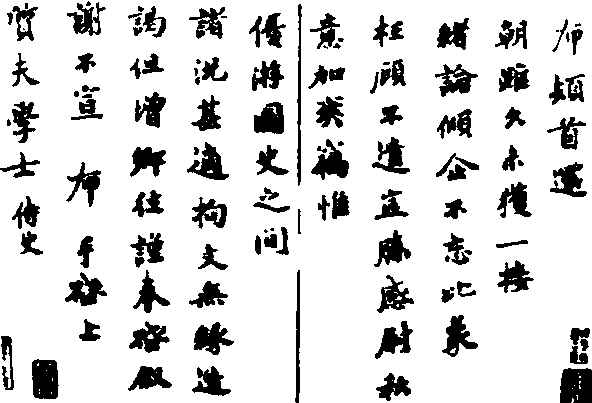 布頓首還
朝雖久未獲一接
緒論傾企不忘比蒙
枉顧不遺豈勝感尉秋
意加爽竊惟
優游圖史之間
諸況甚適拘文無緣造
謁但增鄉往謹奉啓叙
謝不宣 布 手啓上
質夫學士 侍史